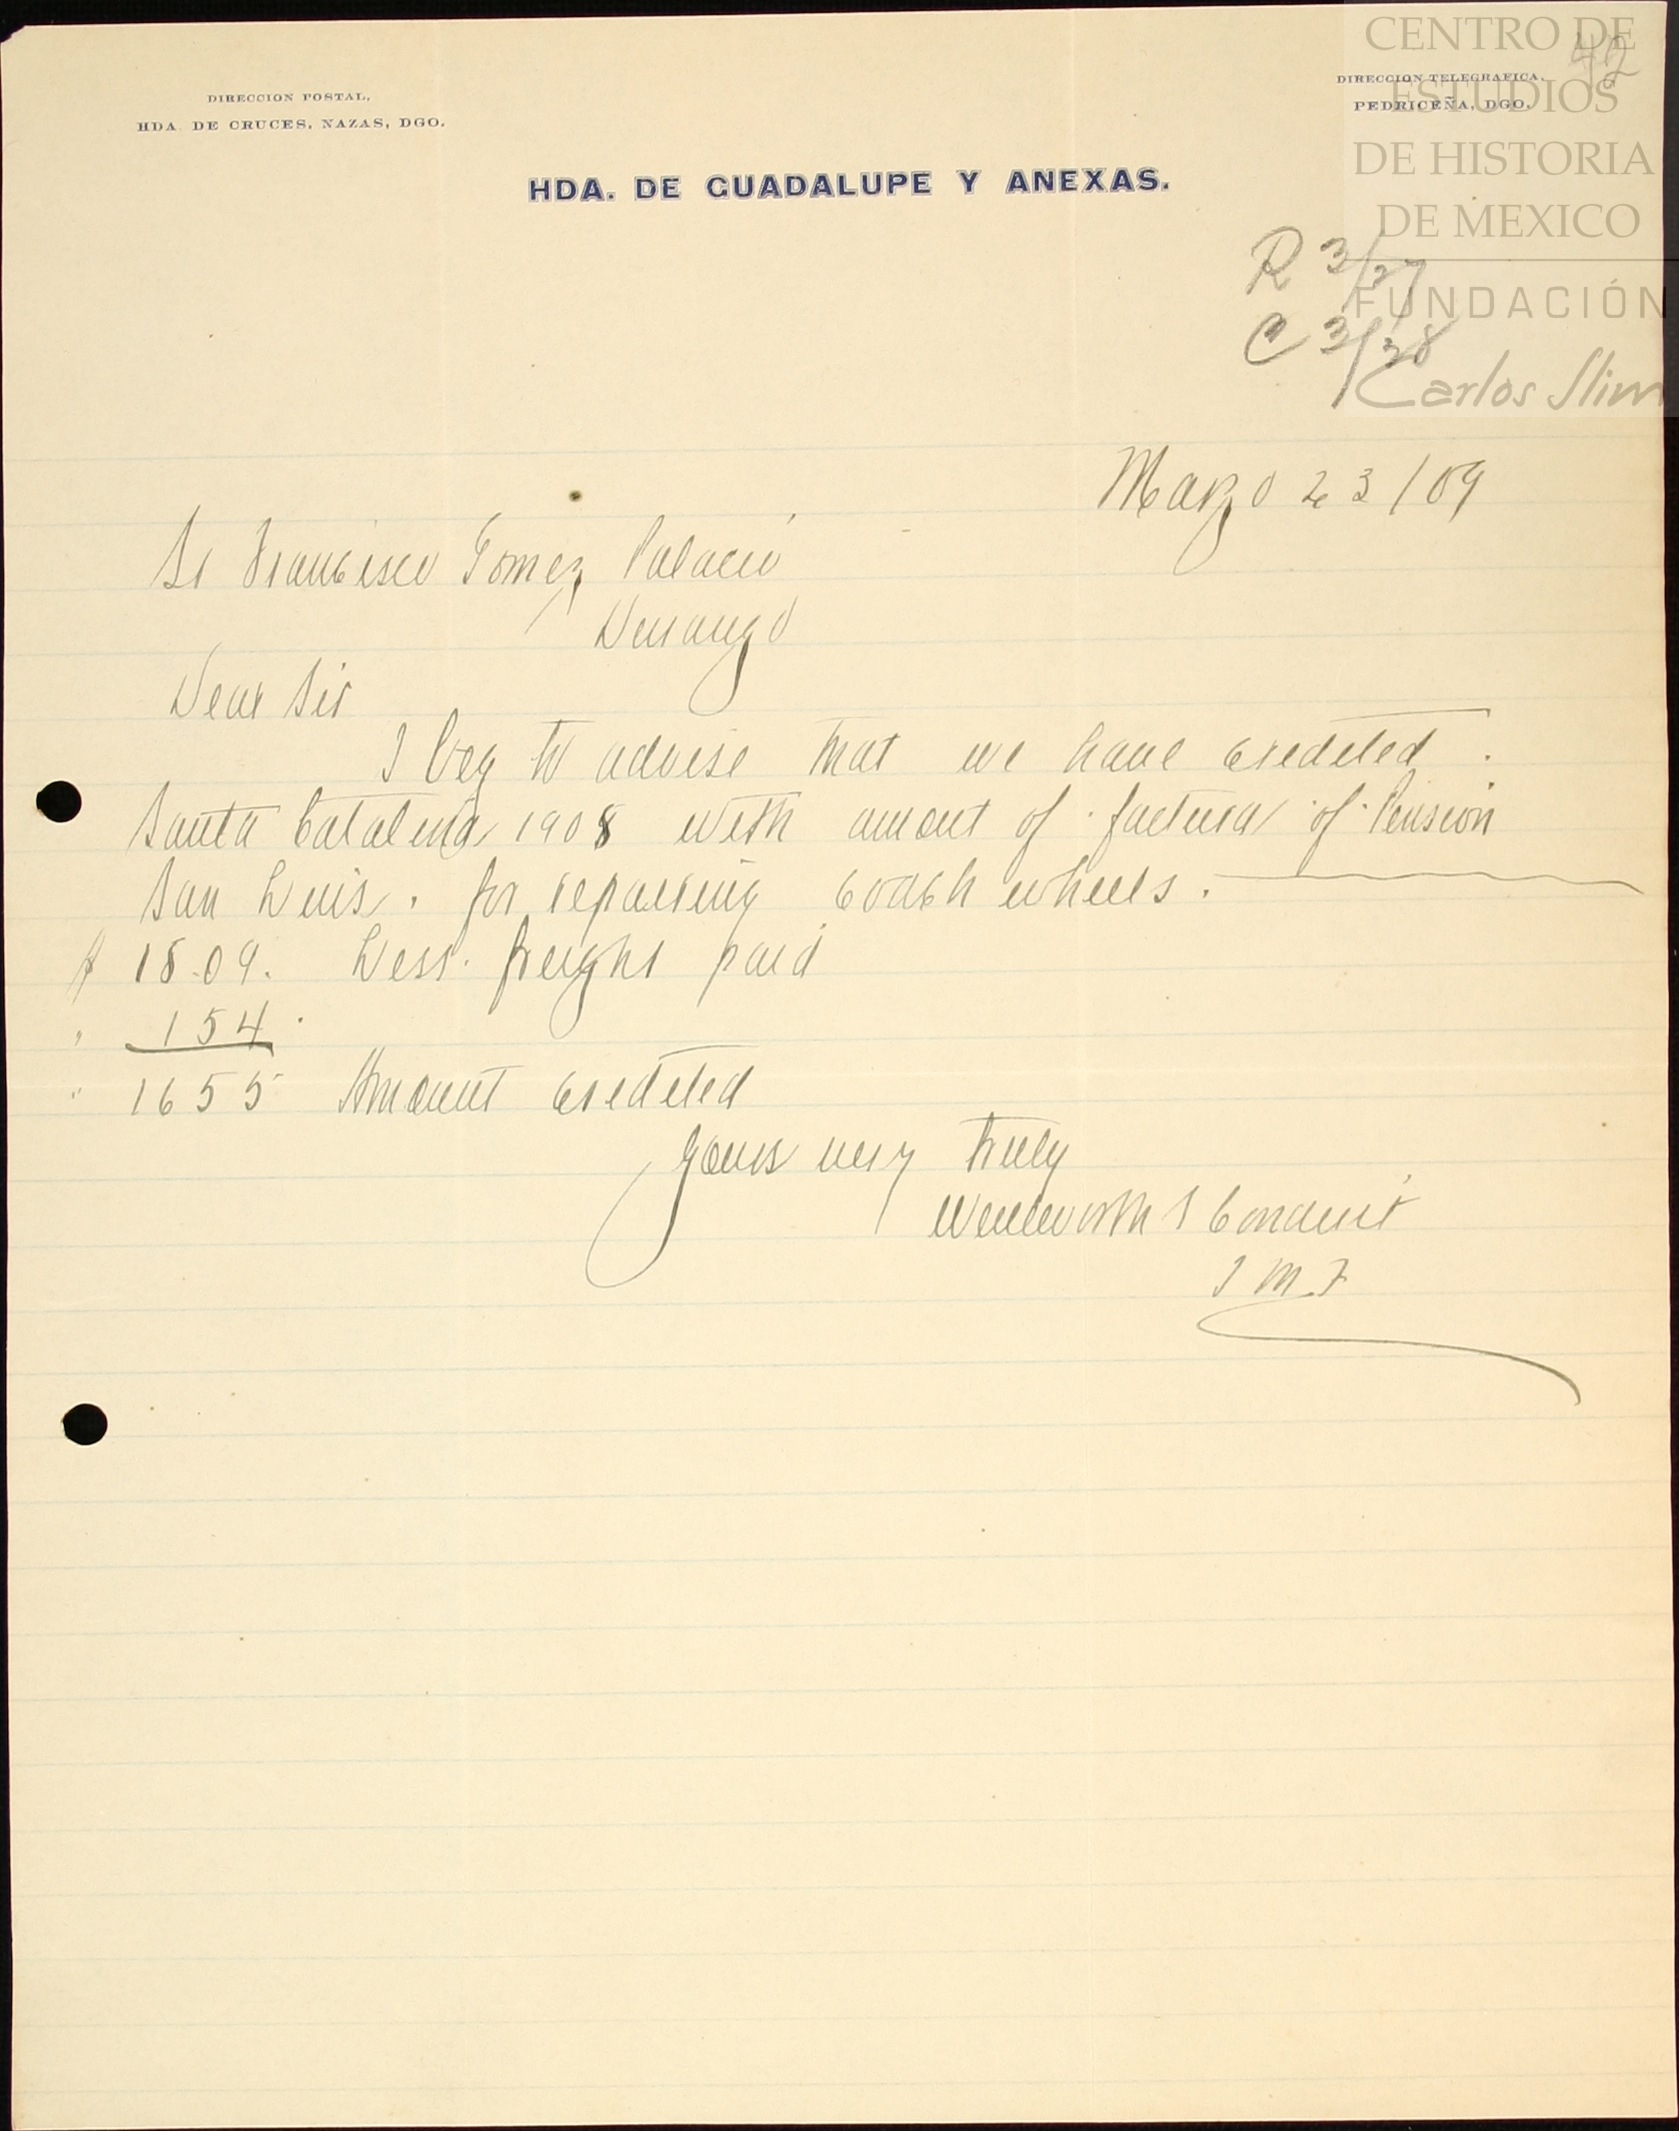 CENTRO DE
ESTUDIOS
DE HISTORIA
DE MEXICO
FUNDACIÓN
Carlos Slim
42
DIRECCION POSTAL,
HDA. DE CRUCES, NAZAS, DGO.
DIRECCION TELEGRAFICA,
PEDRICEÑA, DGO.
HDA. DE GUADALUPE Y ANEXAS.
R 3/27
C 3/28
Marzo 23/09
Sr Francisco Gomez Palacio
Durango
Dear Sir
I beg to advise that we have credited
Santa Catalina 1908 with amount of factura of Pension
San Luis. for repairing coach wheels.
$ 18.09. Less. freight paid
" 154.
" 1655 Amount credited
Yours very truly
Wentworth S Conduit